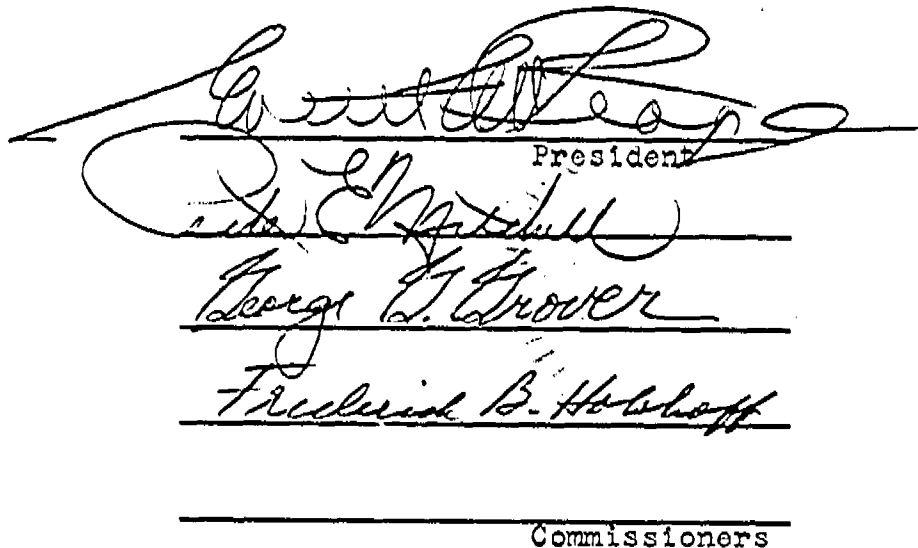 President
E. Mitchell
George G. Grover
Frederick B. Holoboff
Commissioners